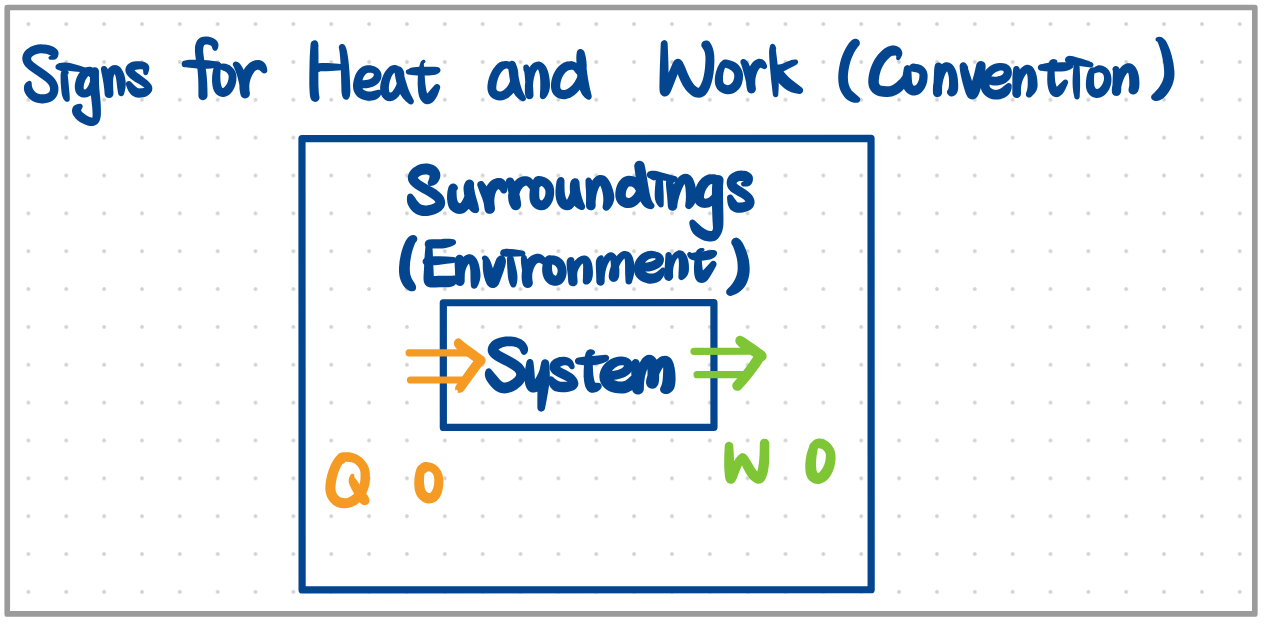 Signs for Heat and Work (Convention)
Surroundings
(Environment)
System
Q 0
W 0